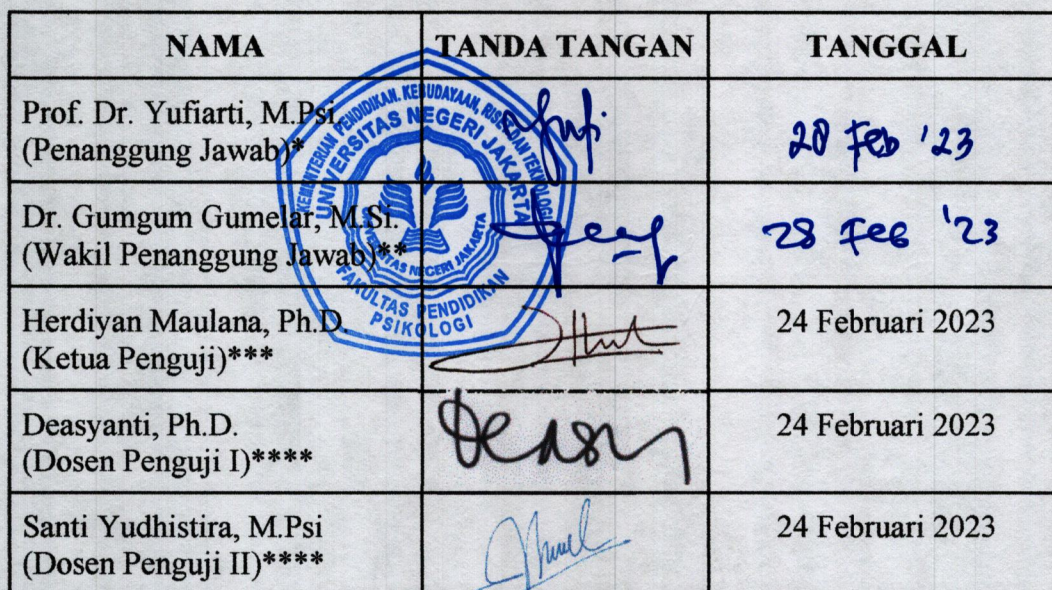 NAMA TANDA TANGAN TANGGAL
Prof. Dr. Yufiarti, M.Psi.
(Penanggung Jawab)*
Yufi
28 Feb '23
Dr. Gumgum Gumelar, M.Si.
(Wakil Penanggung Jawab)**
28 Feb '23
Herdiyan Maulana, Ph.D.
(Ketua Penguji)***
24 Februari 2023
Deasyanti, Ph.D.
(Dosen Penguji I)****
Deasy
24 Februari 2023
Santi Yudhistira, M.Psi
(Dosen Penguji II)****
24 Februari 2023
KEMENTERIAN PENDIDIKAN. KEBUDAYAAN, RISET DAN TEKNOLOGI
UNIVERSITAS NEGERI JAKARTA
UNIVERSITAS NEGERI JAKARTA
FAKULTAS PENDIDIKAN
PSIKOLOGI